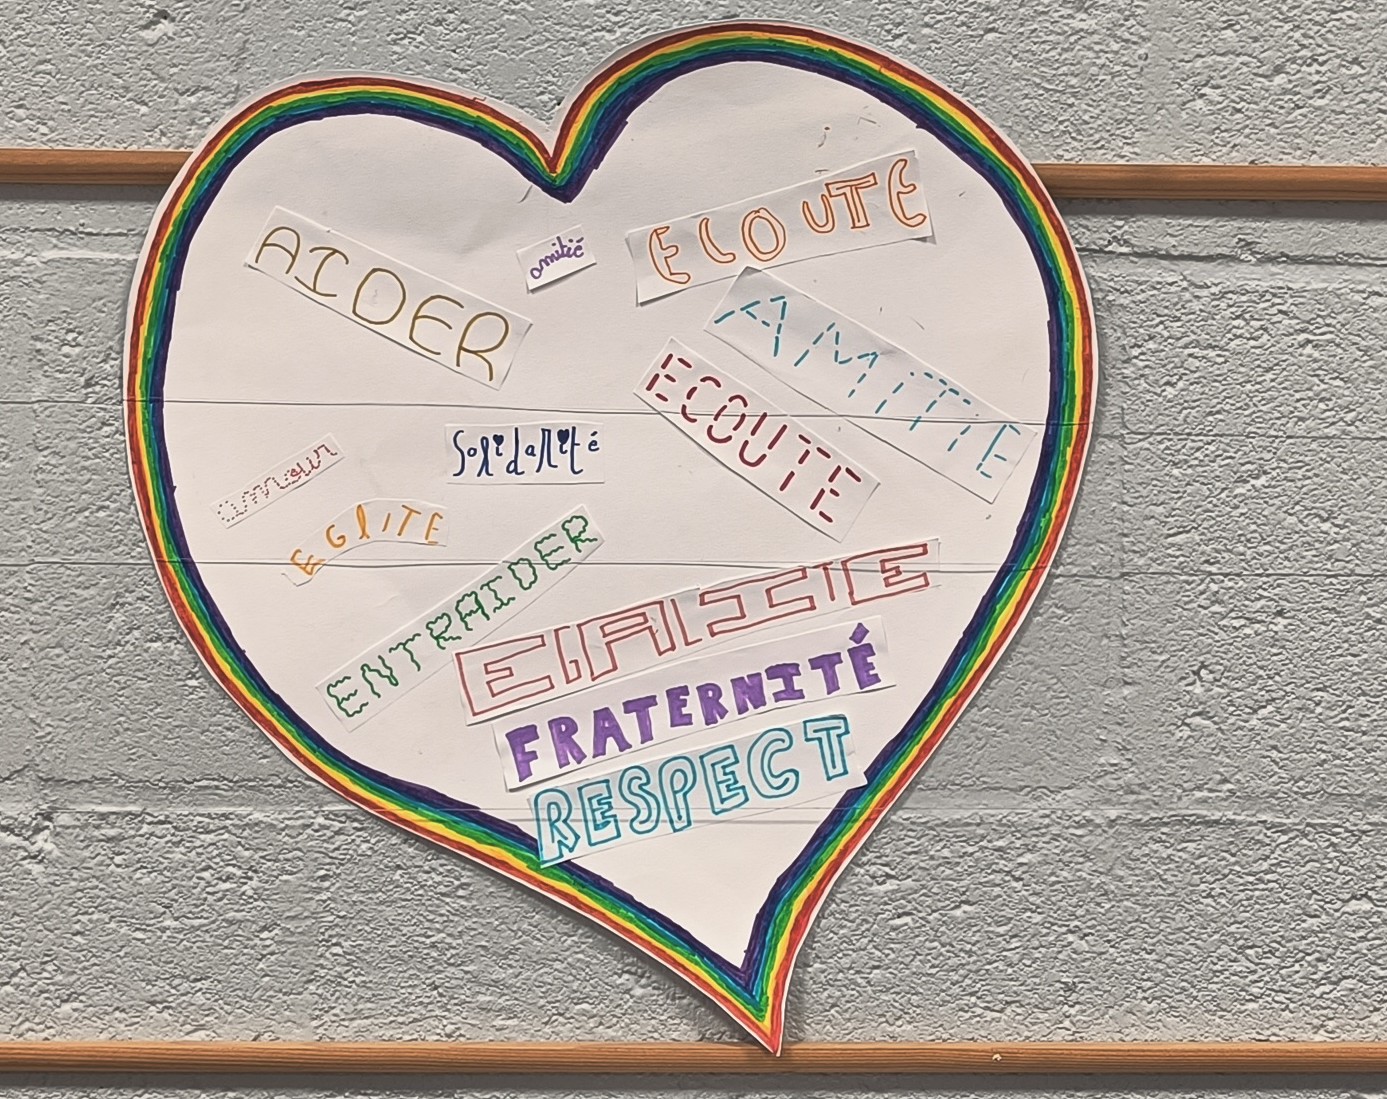 AIDER
amitié
ECOUTE
AMiTIE
ECOUTE
Solidarité
amour
EGlITE
ENTRAIDER
FRATERNITÉ
RESPECT